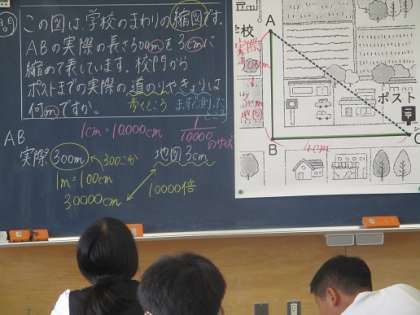 この図は、学校のまわりの縮図です。
ABの実際の長さ300mを3cmに
縮めて表しています。校門から
ポストまでの実際の道のりやきょりは
何mですか。
歩くところ
1cm=10000cm
1/10000
AB
実際 300m
地図 3cm
1m=100cm
30000cm
10000倍
A
学校
実際
300m
地図
3cm
ポスト
B
4cm
C